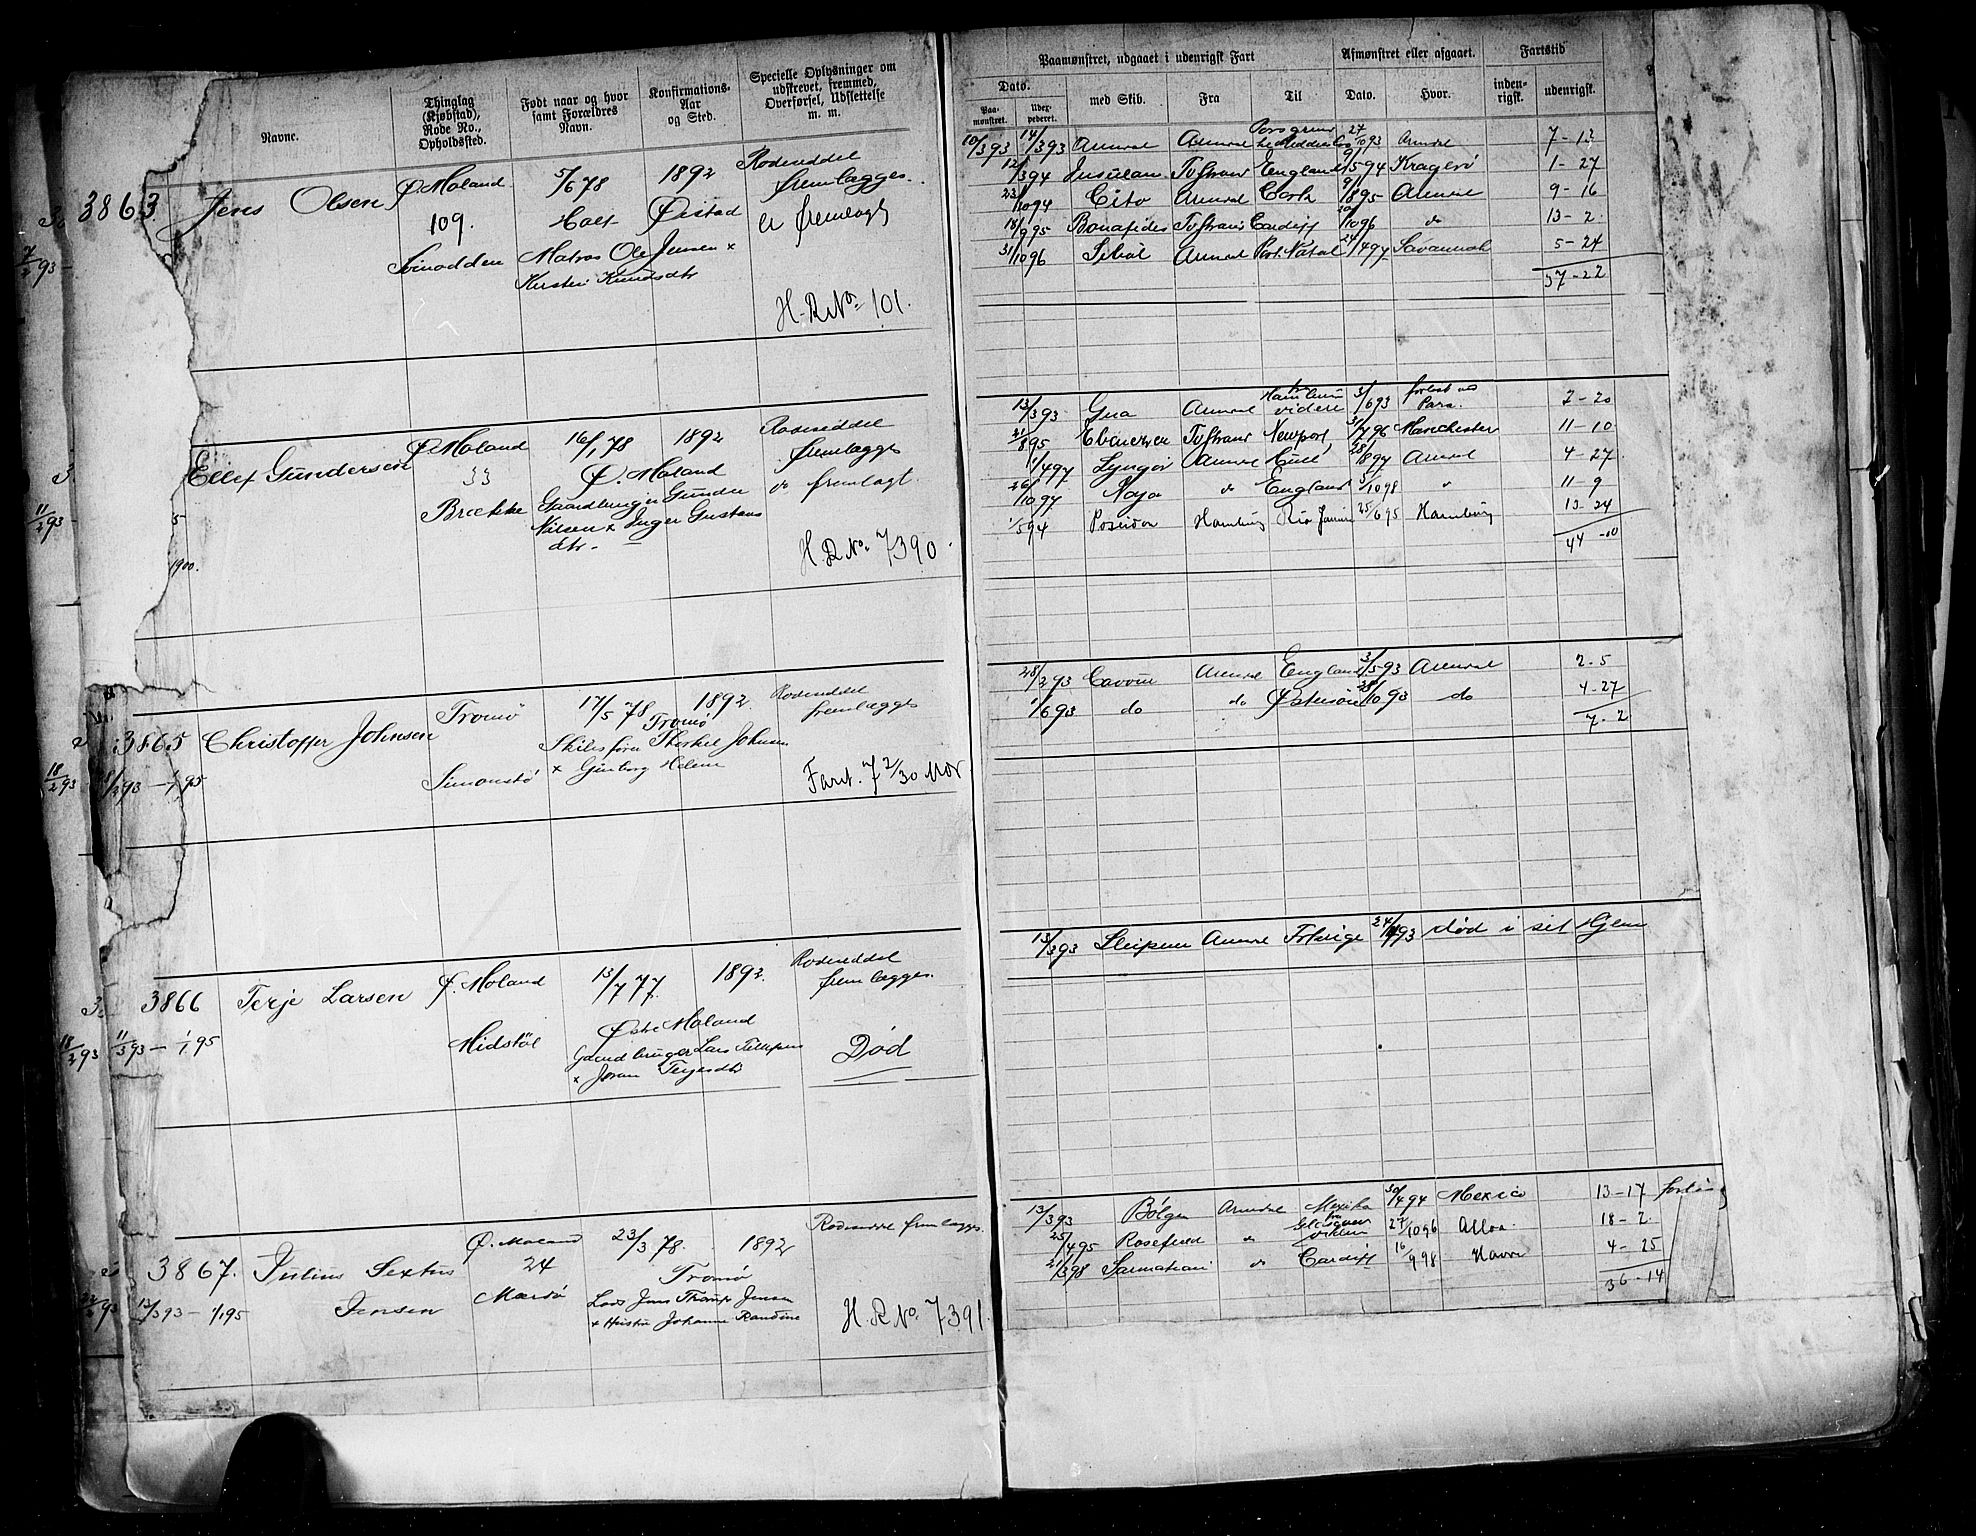 Navne.
Thinglag (Kjøbstad), Rode No., Opholdssted.
Født naar og hvor samt Forældres Navn.
Konfirmations-Aar og Sted.
Specielle Oplysninger om udskrevet, fremmed, Overførsel, Udslettelse m. m.
Paamønstret, udgaaet i udenrigsk Fart
Afmønstret eller afgaaet.
Fartstid
Dato.
Paa-mønstret.
Udex-pederet.
med Skib.
Fra
Til
Dato.
Hvor.
inden-rigsk.
udenrigsk.
3863
Jens Olsen
Ø. Moland
109.
Svinodden
5/6 78
Holt
Matros Ole Jensen x
Kirsten Knudsdtr
1892
Øistad
Rodeseddel
fremlægges.
er fremlagt
H-R No. 101.
10/3 93 14/3 93 Arendal Arendal 27/10 93 Arendal 7-13
12/3 94 Insulan Tvstrand England 9/5 94 Kragerø 1-27
23/10 94 Cito Arendal Cork 9/8 95 Arendal 9-16
18/9 95 Bonafides Tvstrand Cardiff 20/10 96 do 13-2.
31/10 96 Arendal Port Natal 24/4 97 Savannah 5-24
37-22
Ellef Gundersen
Ø. Moland
33
Brække
16/1 78
Ø. Moland
Gaardbruger Gunder
Nilsen x Inger Gustavs
dtr.
1892
Rodeseddel
fremlægges
do fremlagt.
H R No. 7390.
11/2 93
5
1900.
13/3 93 Gna Arendal videre 3/6 93 forlist ved Para. 2-20
21/8 95 Ebenezer Tvstrand Newport 31/7 96 Manchester 11-10
1/4 97 Lyngør Arendal Hull 28/8 97 Arendal 4-27
26/10 97 do England 3/10 98 " 11-9
1/5 94 Poseidon Hamburg Rio Janeiro 25/6 95 Hamburg 13-24
44-00
3865
Christoffer Johnsen
Tromø
Simonstø
17/5 78
Tromø
Skibsfører Thorkel Johnsen
x Ginborg Helene
1892
Rodeseddel
fremlægges
Fart. 7 2/30 Mdr
18/2 93
18/2 93 - 1/1 95
28/2 93 Cavour Arendal England 3/5 93 Arendal 2-5
1/6 93 do do Østersøen 28/10 93 do 4-27
7-2
3866
Terje Larsen
Ø. Moland
Midstøl
13/7 77
Østre Moland
Gaardbruger Lars Tellefsen
x Joran Terjesdtr
1892.
Rodeseddel
fremlægges.
Død
18/2 93
11/3 93 - 1/1 95
13/3 93 Sleipner Arendal Frkrige 24/ 93 død i sit Hjem
3867.
Julius Sextus
Jensen
Ø. Moland
24
Mærdø
23/3 78.
Tromø
Lods Jens Jensen
x Hustru Johanne Randine
1892
Rodeseddel fremlægges.
H. R No. 7391
13/3 93 - 1/1 95
13/3 93 Bølgen Arendal Mexiko 30/4 94 Mexico 13-17
25/4 95 Rosefield do 27/10 96 Alloa. 18-2
21/3 98 Sarmatian do Cardiff 16/9 98 Havre 4-25
36-14